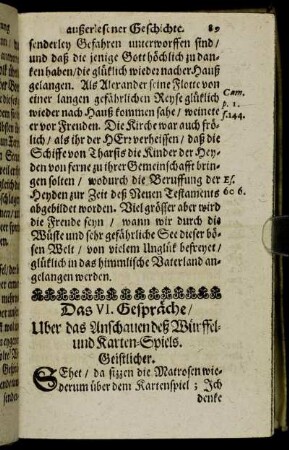 außerlesener Geschichte. 89
senderley Gefahren unterworffen sind/
und daß die jenige Gott höchlich zu dan-
ken haben/die glüklich wieder nacher Hauß
gelangen. Als Alexander seine Flotte von
einer langen gefährlichen Reyse glüklich
wieder nach Hauß kommen sahe/ weinete
er vor Freuden. Die Kirche war auch frö-
lich/ als ihr der HErr verheissen/ daß die
Schiffe von Tharsis die Kinder der Hey-
den von ferne zu ihrer Gemeinschafft brin-
gen solten/ wodurch die Beruffung der
Heyden zur Zeit deß Neuen Testaments
abgebildet worden. Viel grösser aber wird
die Freude seyn/ wann wir durch die
Wüste und sehr gefährliche See dieser bö-
sen Welt/ von vielem Unglük befreyet/
glüklich in das himmlische Vaterland an-
gelangen werden.
Cam.
p. 1.
f. 144.
Es.
60 6.
Das VI. Gespräche/
Uber das Anschauen deß Würffel-
und Karten-Spiels.
Geistlicher.
SEhet/ da sizzen die Matrosen wie-
derum über dem Kartenspiel; Ich
denke